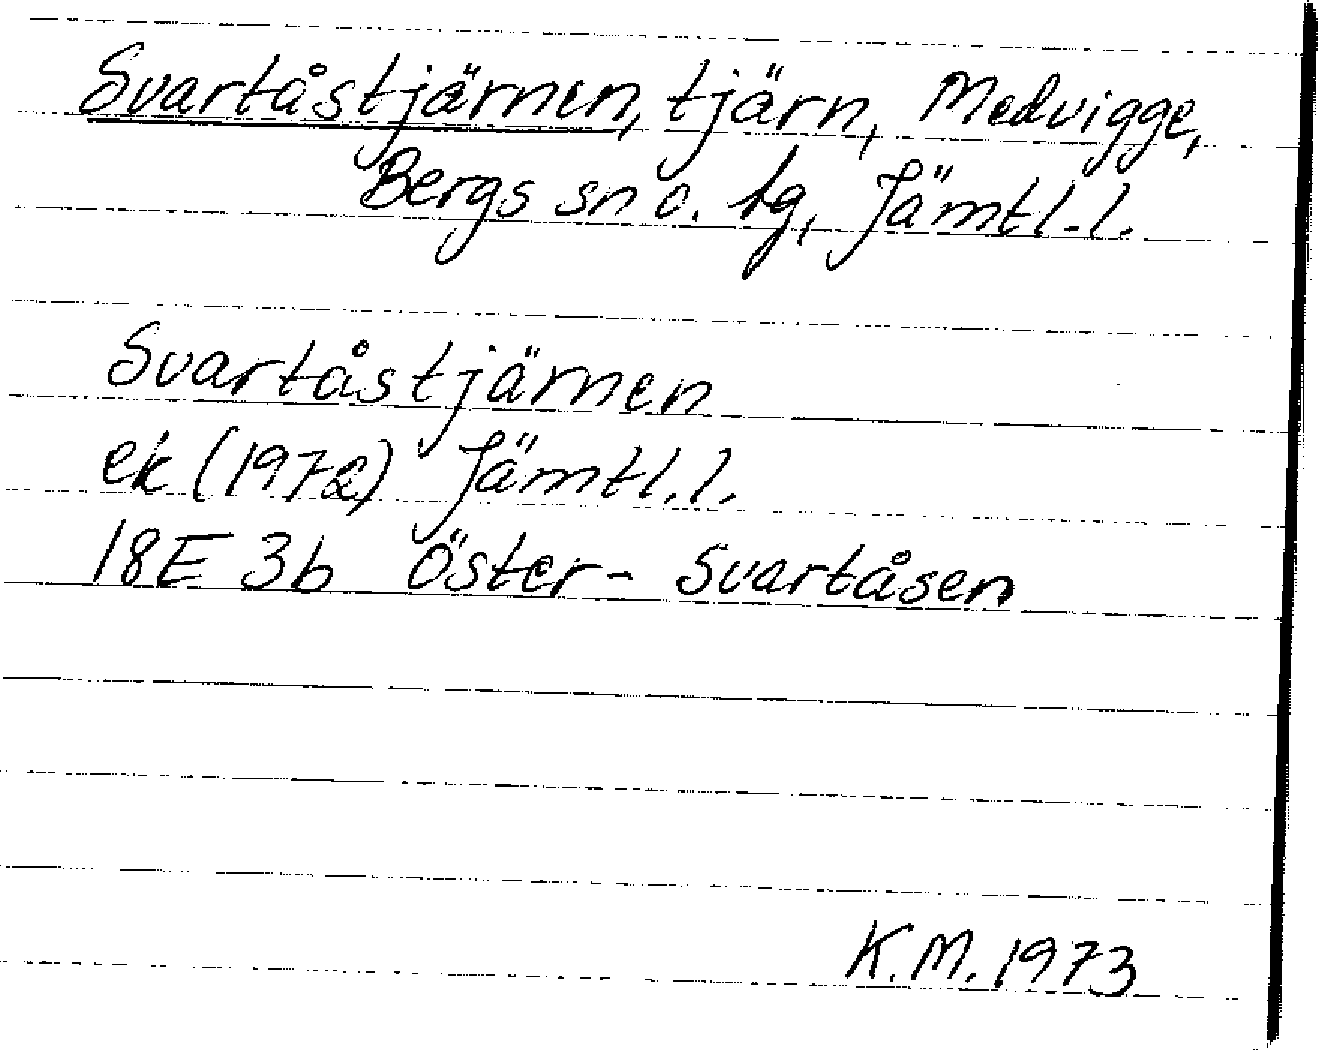 Svartåstjärnen, tjärn, Medvigge,
Bergs sn o. tg, Jämtl. l.
Svartåstjärnen
ek (1972) Jämtl. l.
18E 3b Öster-Svartåsen
K.M. 1973